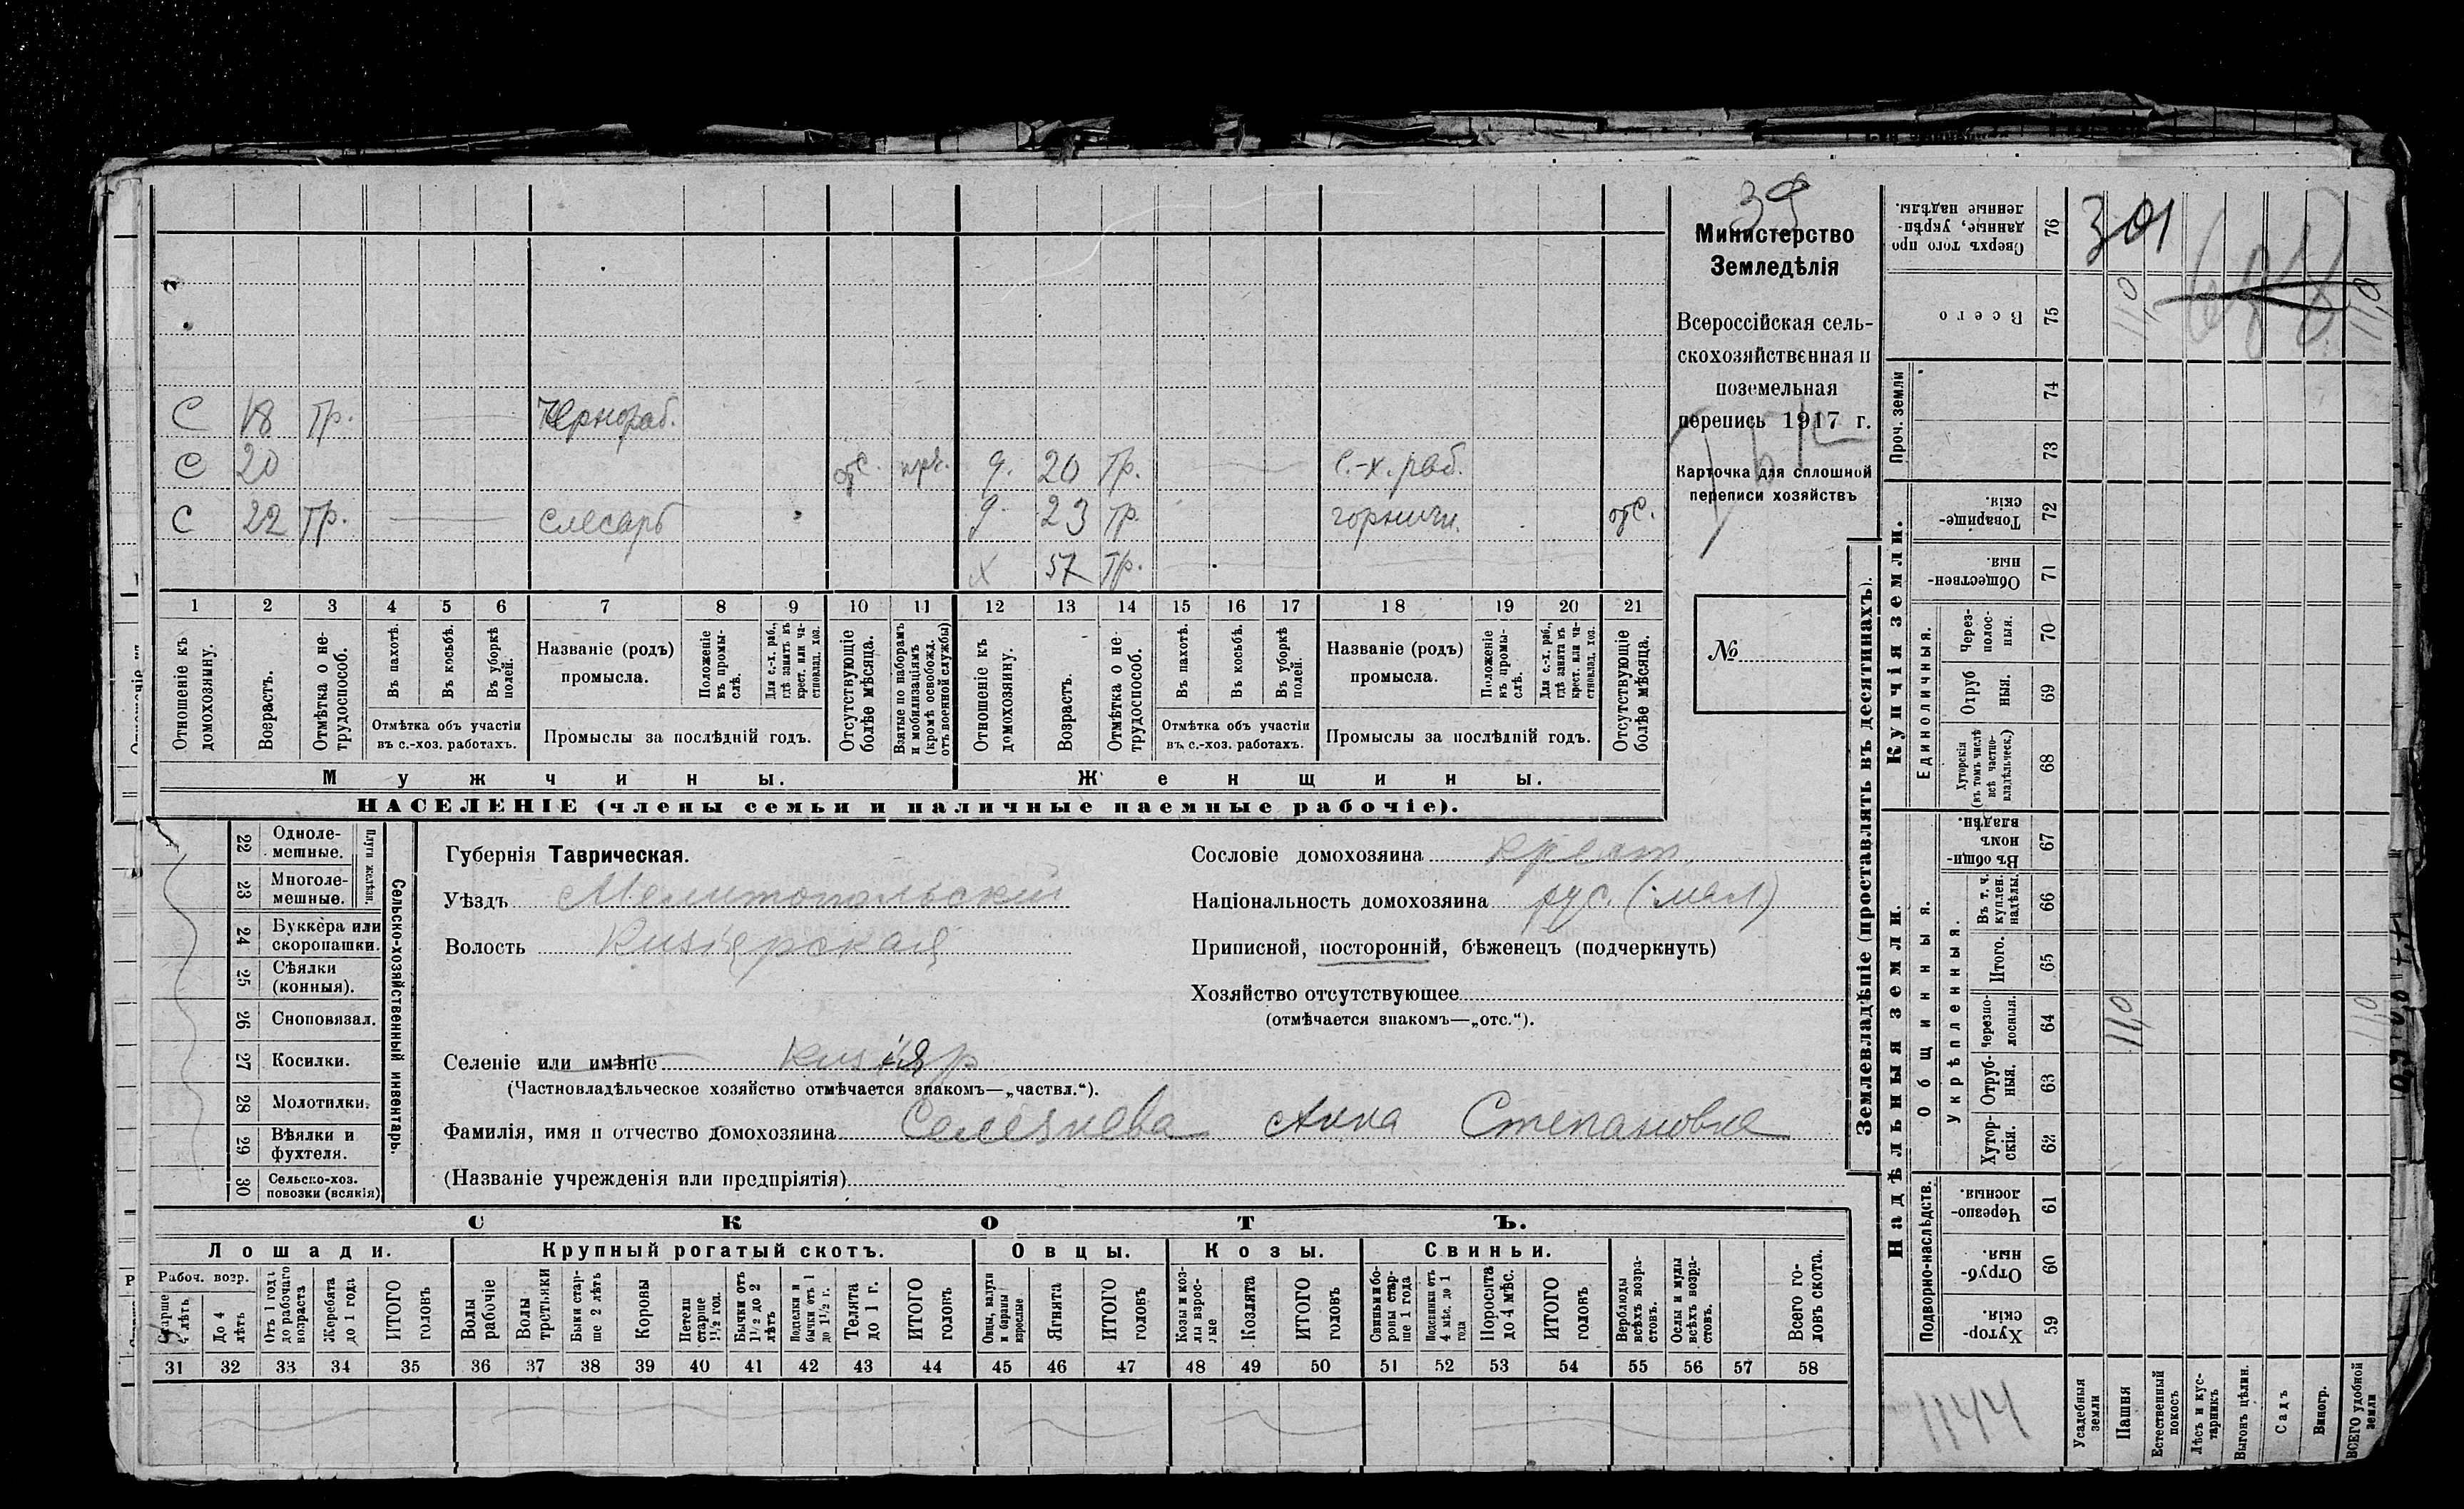 39
Министерство
Земледѣлія
Всероссійская сель-
скохозяйственная и
поземельная
перепись 1917 г.
Карточка для сплошной
переписи хозяйствъ
№
С 18 тр. Чернораб.
С 20 отс. д. 20 тр. с.-х. раб.
С 22 тр. слесарь д. 23 тр. горничн. отс.
х 57 тр.
1 2 3 4 5 6 7 8 9 10 11 12 13 14 15 16 17 18 19 20 21
Отношеніе къ домохозяину.
Возрастъ.
Отмѣтка о не-трудоспособ.
Въ пахотѣ.
Въ косьбѣ.
Въ уборкѣ полей.
Отмѣтка объ участіи
въ с.-хоз. работахъ.
Названіе (родъ)
промысла.
Положеніе въ промы-слѣ.
Для с.-х. раб., гдѣ занятъ въ крест. или ча-стновлад. хоз.
Промыслы за послѣдній годъ.
Отсутствующіе болѣе мѣсяца.
Взятые по наборамъ и мобилизаціямъ (кромѣ освобожд. отъ военной службы)
Отношеніе къ домохозяину.
Возрастъ.
Отмѣтка о не-трудоспособ.
Въ пахотѣ.
Въ косьбѣ.
Въ уборкѣ полей.
Отмѣтка объ участіи
въ с.-хоз. работахъ.
Названіе (родъ)
промысла.
Положеніе въ промы-слѣ.
Для с.-х. раб., гдѣ занята въ крест. или ча-стновлад. хоз.
Промыслы за послѣдній годъ.
Отсутствующіе болѣе мѣсяца.
Мужчины. Женщины.
НАСЕЛЕНІЕ (члены семьи и наличные наемные рабочіе).
Сельско-хозяйственный инвентарь.
Плуги желѣзн.
22 Одноле-мешные.
23 Многоле-мешные.
24 Буккера или скоропашки.
25 Сѣялки (конныя).
26 Сноповязал.
27 Косилки.
28 Молотилки.
29 Вѣялки и фухтеля.
30 Сельско-хоз. повозки (всякія)
Губернія Таврическая.
Уѣздъ Мелитопольскій
Волость Кизіярская
Селеніе или имѣніе Кизіяр
(Частновладѣльческое хозяйство отмѣчается знакомъ—„частвл.“).
Фамилія, имя и отчество домохозяина Селезнева Анна Степановна
(Названіе учрежденія или предпріятія)
Сословіе домохозяина крест.
Національность домохозяина рус. (мал.)
Приписной, посторонній, бѣженецъ (подчеркнуть)
Хозяйство отсутствующее
(отмѣчается знакомъ—„отс.“).
СКОТЪ.
Лошади. Крупный рогатый скотъ. Овцы. Козы. Свиньи.
Рабоч. возр.
Старше 4 лѣтъ
До 4 лѣтъ
Отъ 1 года до рабочаго возраста
Жеребята до 1 года
ИТОГО головъ
Волы рабочіе
Волы третьяки
Быки стар-ше 2 лѣтъ
Коровы
Петели старше 1½ год.
Бычки отъ 1½ до 2 лѣтъ
Подтелки и бычки отъ 1 до 1½ г.
Телята до 1 г.
ИТОГО головъ
Овцы, валухи и бараны взрослые
Ягнята
ИТОГО головъ
Козы и коз-лы взрос-лые
Козлята
ИТОГО головъ
Свиньи и бо-ровы стар-ше 1 года
Подсвинки отъ 4 мѣс. до 1 года
Поросята до 4 мѣс.
ИТОГО головъ
Верблюды всѣхъ возра-стовъ.
Ослы и мулы всѣхъ возра-стовъ.
Всего го-ловъ скота.
31 32 33 34 35 36 37 38 39 40 41 42 43 44 45 46 47 48 49 50 51 52 53 54 55 56 57 58
Землевладѣніе (проставлять въ десятинахъ).
Сверхъ того про-данные, укрѣп-ленные надѣлы. 76 301
Всего 75 11,0 11,0
Проч. земли 74
73
Купчія земли.
Товарище-скія. 72
Обществен-ныя 71
Единоличныя.
Через-полос-ныя. 70
Отруб-ныя. 69
Хуторскія (въ томъ числѣ всѣ частно-владѣльческ.) 68
Надѣльныя земли.
Общинныя.
Въ общи-номъ владѣн. 67
Укрѣпленныя.
Въ т. ч. куплен. надѣлы. 66
Итого. 65
Черезпо-лосныя. 64 11,0 11,0
Отруб-ныя. 63
Хутор-скія. 62
Подворно-наслѣдств.
Черезпо-лосныя. 61
Отруб-ныя. 60
Хутор-скія. 59
1144
Усадебныя земли
Пашня
Естественный покосъ
Лѣсъ и кус-тарникъ
Выгонъ цѣлин.
Садъ
Виногр.
ВСЕГО удобной земли